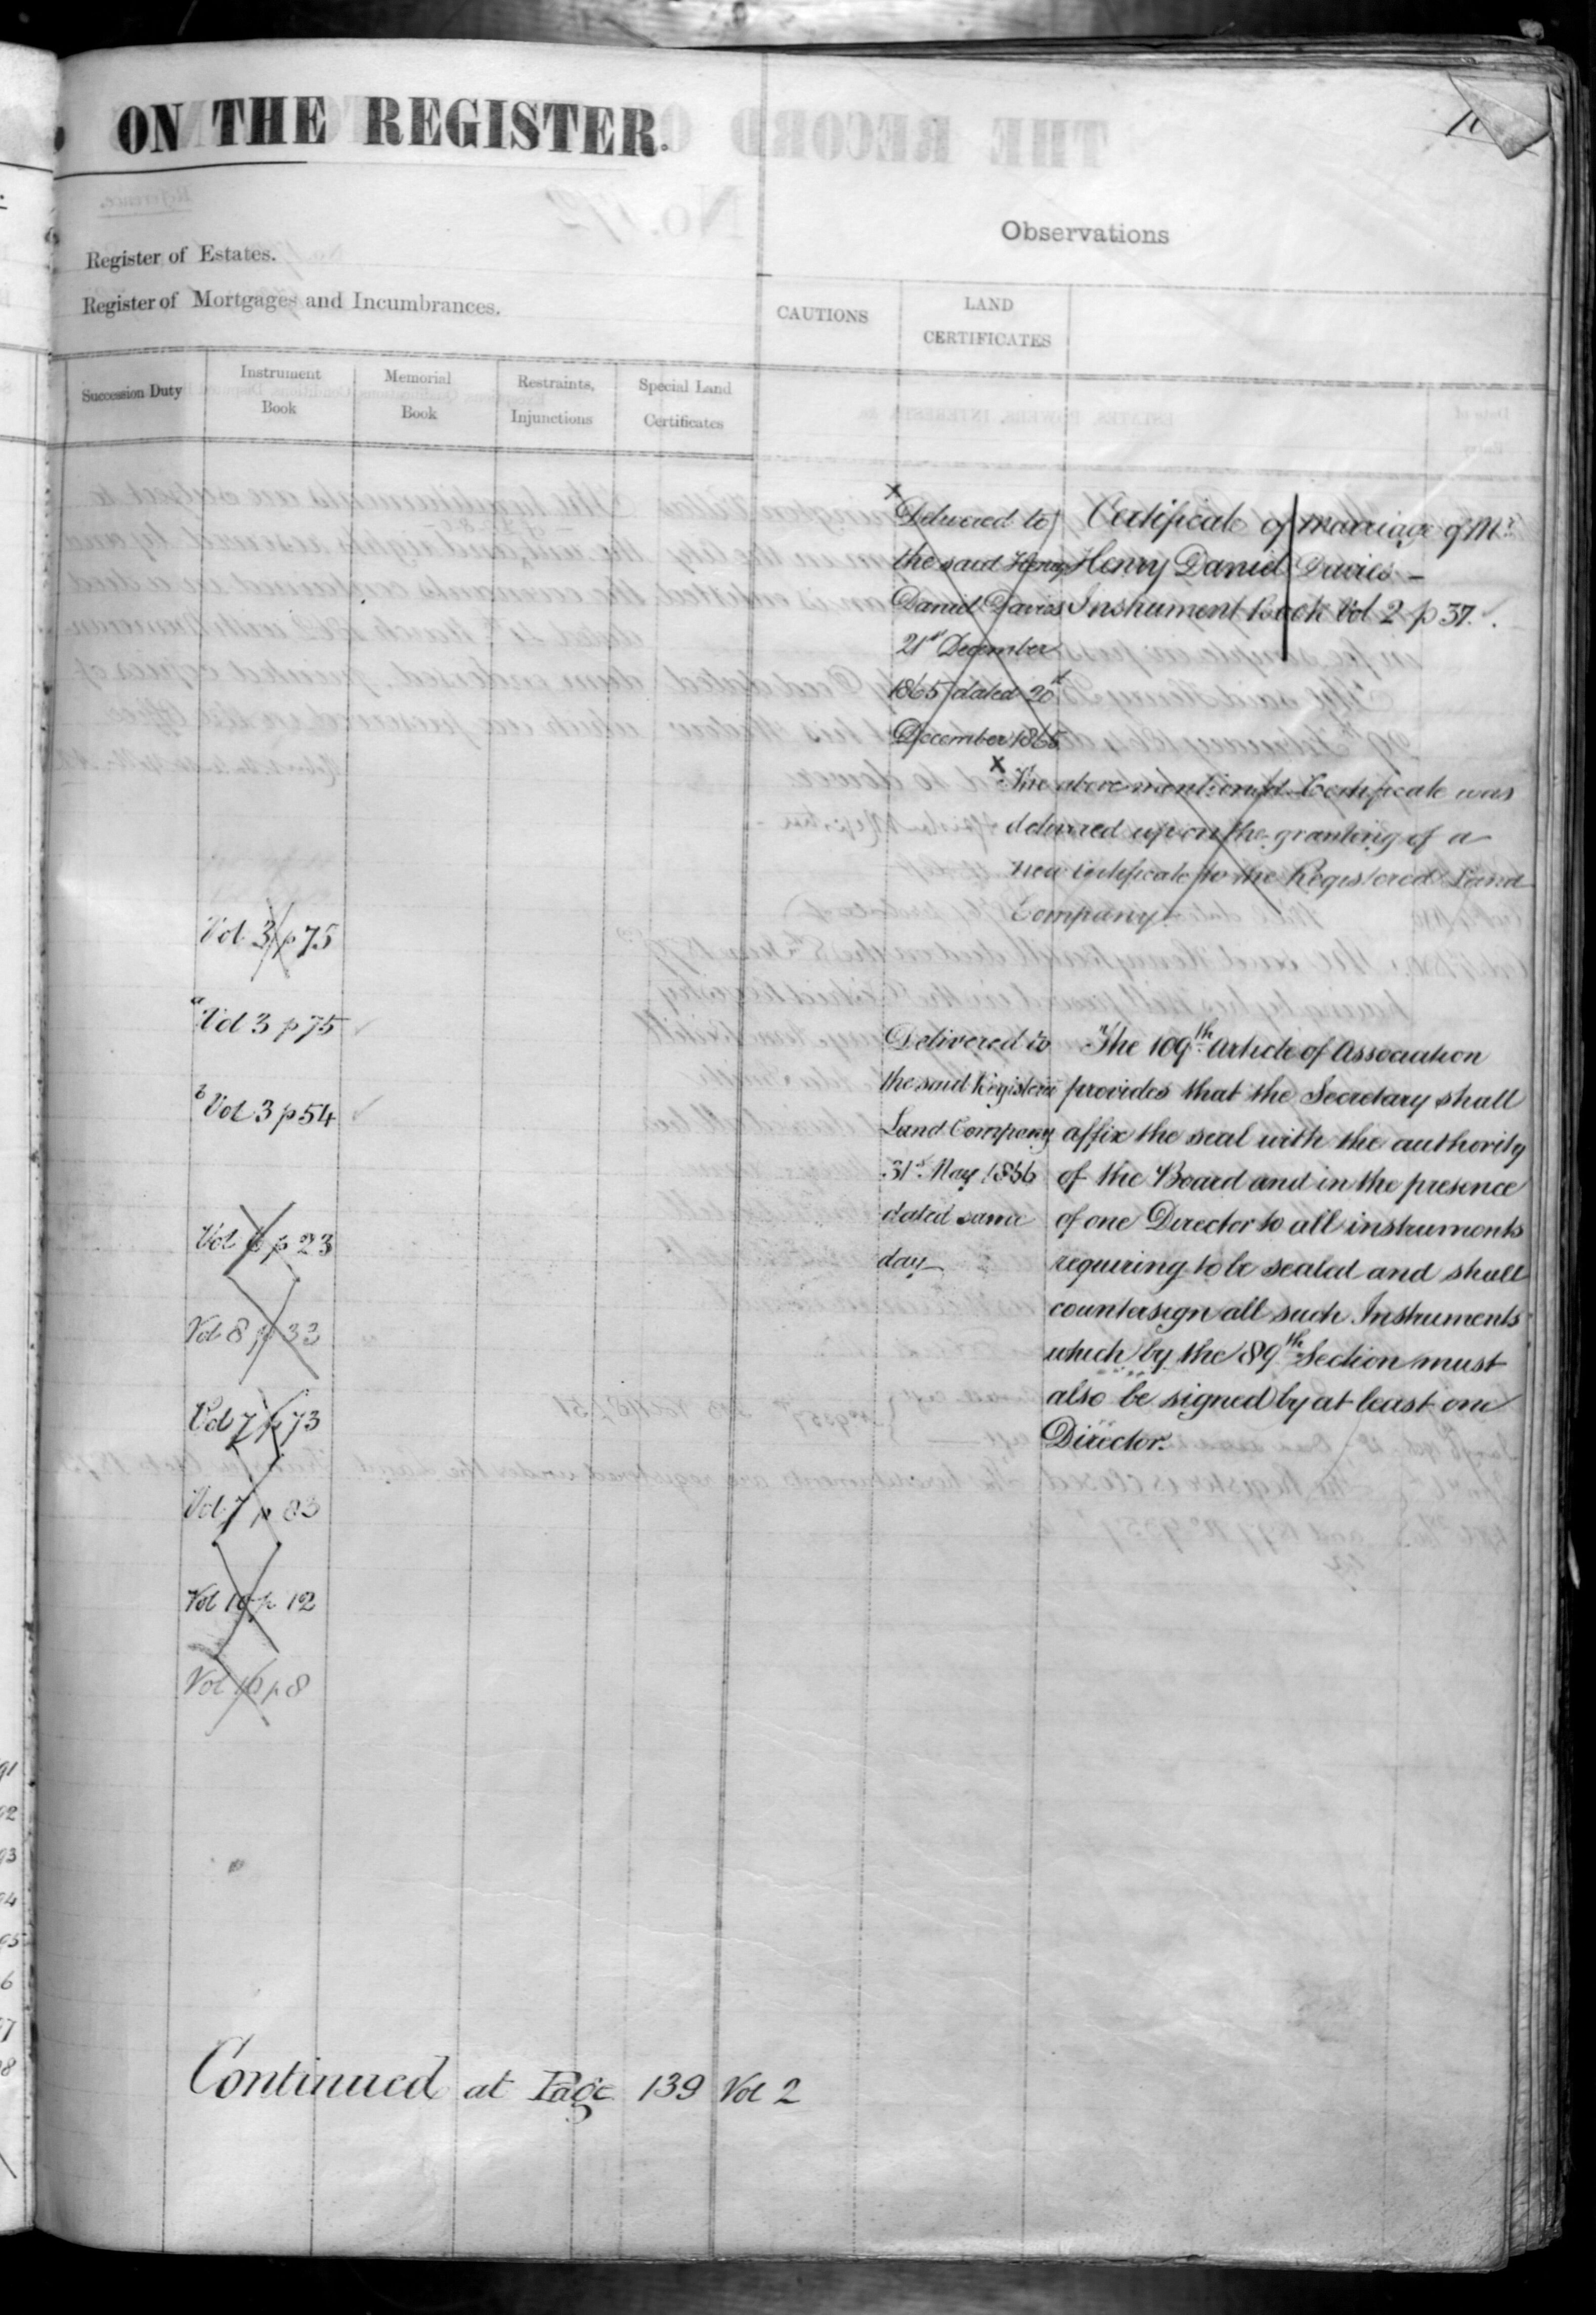 ON THE REGISTER.
Observations
Register of Estates.
Register of Mortgages and Incumbrances.
CAUTIONS
LAND
CERTIFICATES
Succession Duty
Instrument
Book
Memorial
Book
Restraints,
Injunctions
Special Land
Certificates
x
Delivered to
the said Henry
Daniel Davies
21st December
1865 dated 20th
December 1865
Certificate of marriage of Mr
Henry Daniel Davies —
Instrument book Vol 2 p 37.
x The above mentioned Certificate was
delivered up on the granting of a
new certificate to the Registered Land
Company.
Vol 3 p 75
a Vol 3 p 75
b Vol 3 p 54
Vol p 23
Vol 8 p 33
Vol 7 p 73
Vol 7 p 83
Vol 10 p 12
Vol 10 p 8
Delivered to
the said Registered
Land Company
31st May 1866
dated same
day
The 109th Article of Association
provides that the Secretary shall
affix the seal with the authority
of the Board and in the presence
of one Director to all instruments
requiring to be sealed and shall
countersign all such Instruments
which by the 89th Section must
also be signed by at least one
Director.
Continued at Page 139 Vol 2